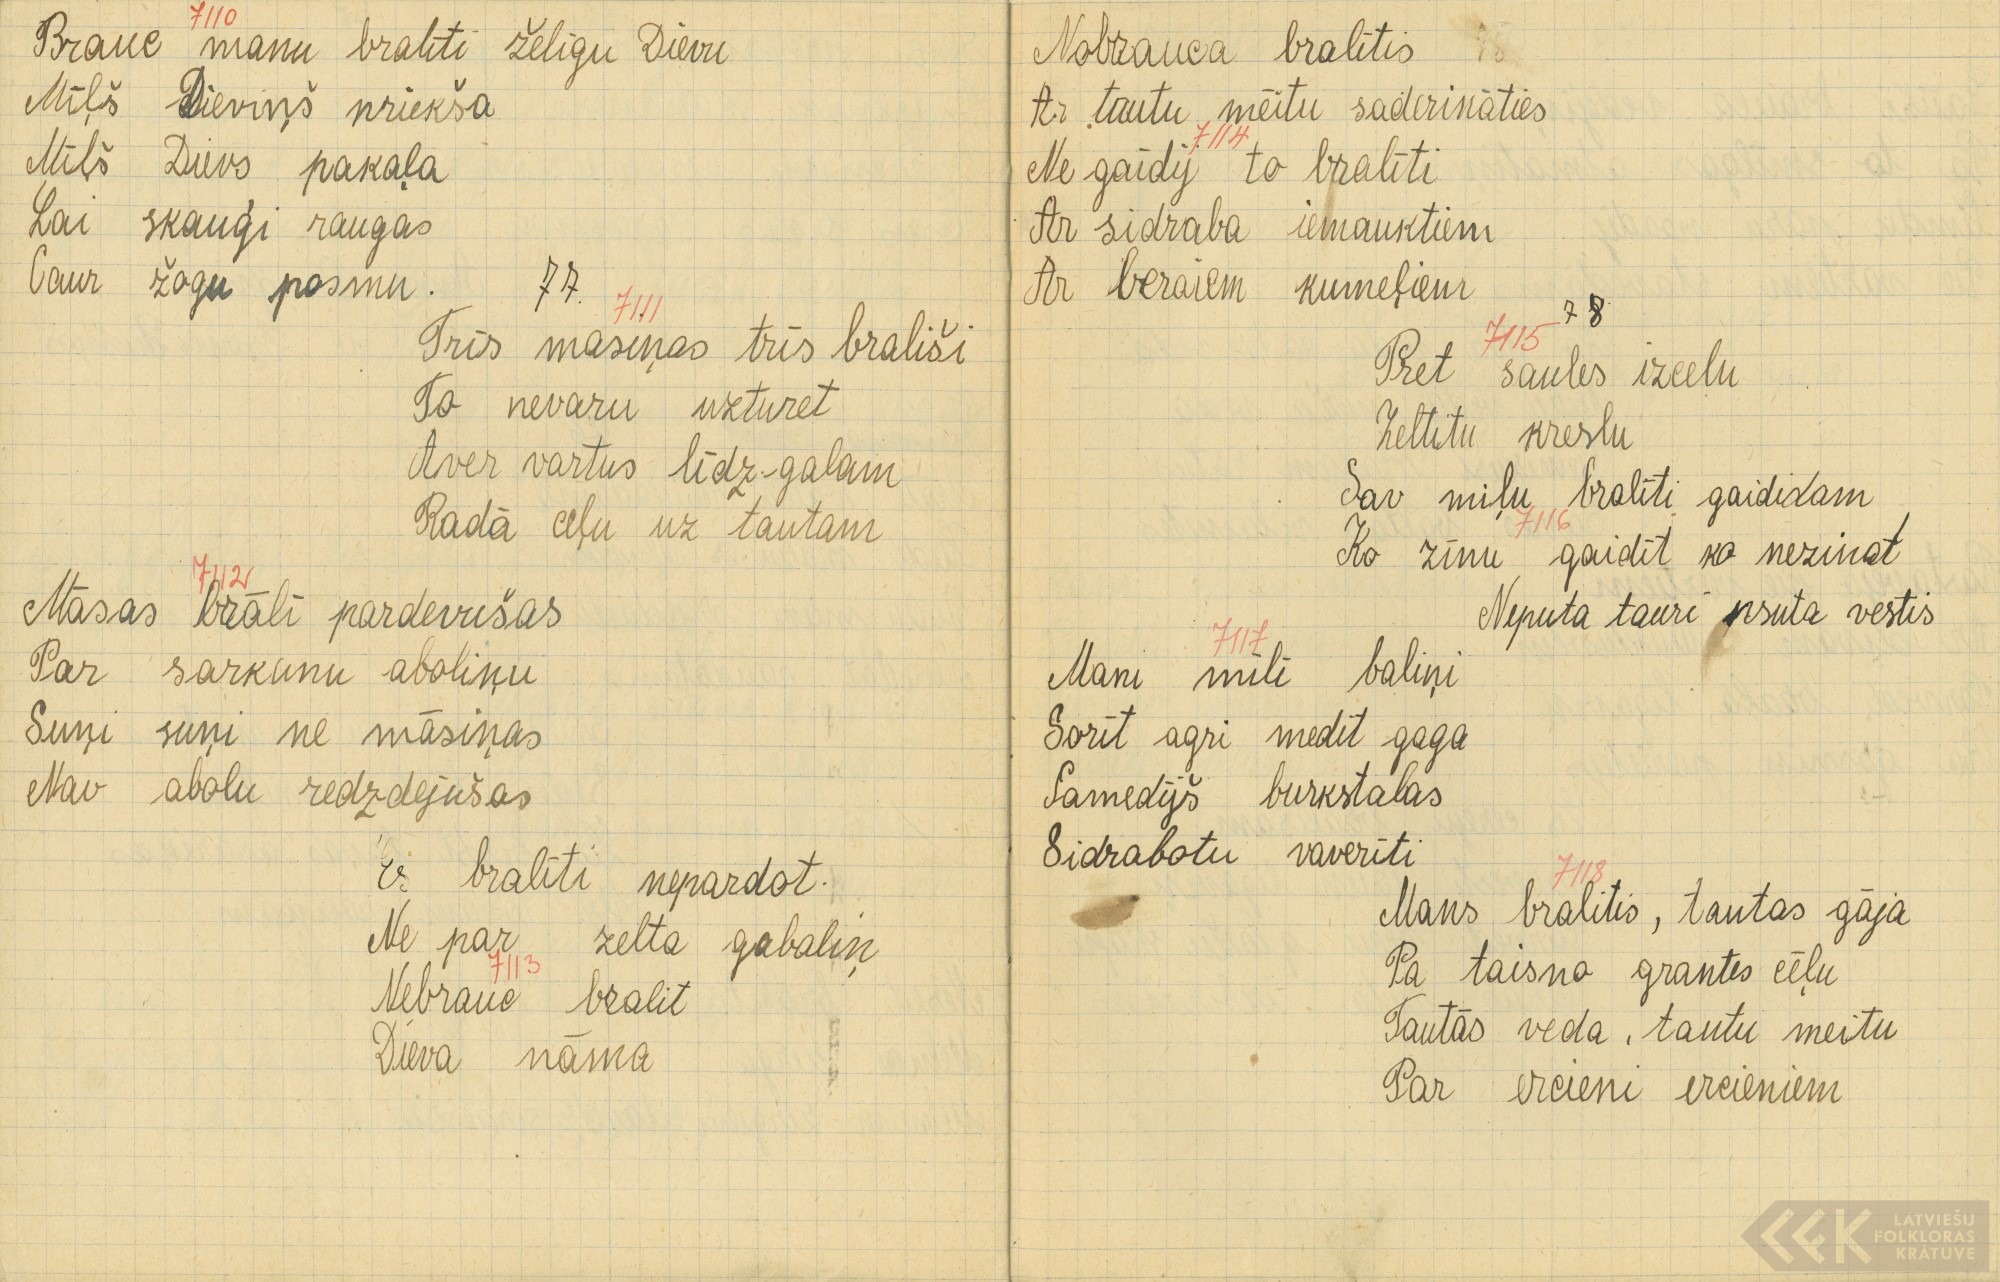 7110
Brauc manu bralīti želīgu Dievu
Mīļš Dieviņš priekša
Mīļš Dievs pakaļa
Lai skauģi raugas
Caur žogu posmu.
77.
7111
Trīs masiņas trīs brališi
To nevaru uzturet
Aver vartus līdz-galam
Radā ceļu uz tautam
7112
Māsas brālī pardevušas
Par sarkanu aboliņu
Suņi suņi ne māsiņas
Nav abolu redzdejušas
Es bralīti nepardot.
Ne par zelta gabaliņ
7113
Nebrauc bralit
Dieva nāma
Nobrauca bralītis
Ar tautu mēitu saderināties
7114
Ne gaīdij to bralīti
Ar sidraba iemauktiem
Ar beraiem kumeļiem
78
7115
Pret saules izcelu
Zeltitu kreslu
Sav miļu bralīti gaididam
7116
Ko zīnu gaidīt ko nezinat
Neputa tauri nsuta vestis
7117
Mani mīlī baliņi
Sorīt agri medīt gaga
Samedījš burkstalas
Sidrabotu vaverīti
7118
Mans bralitis, tautas gāja
Pa taisno grantes cēļu
Tautās veda, tautu meitu
Par ercieni ercieniem
LATVIEŠU
FOLKLORAS
KRĀTUVE